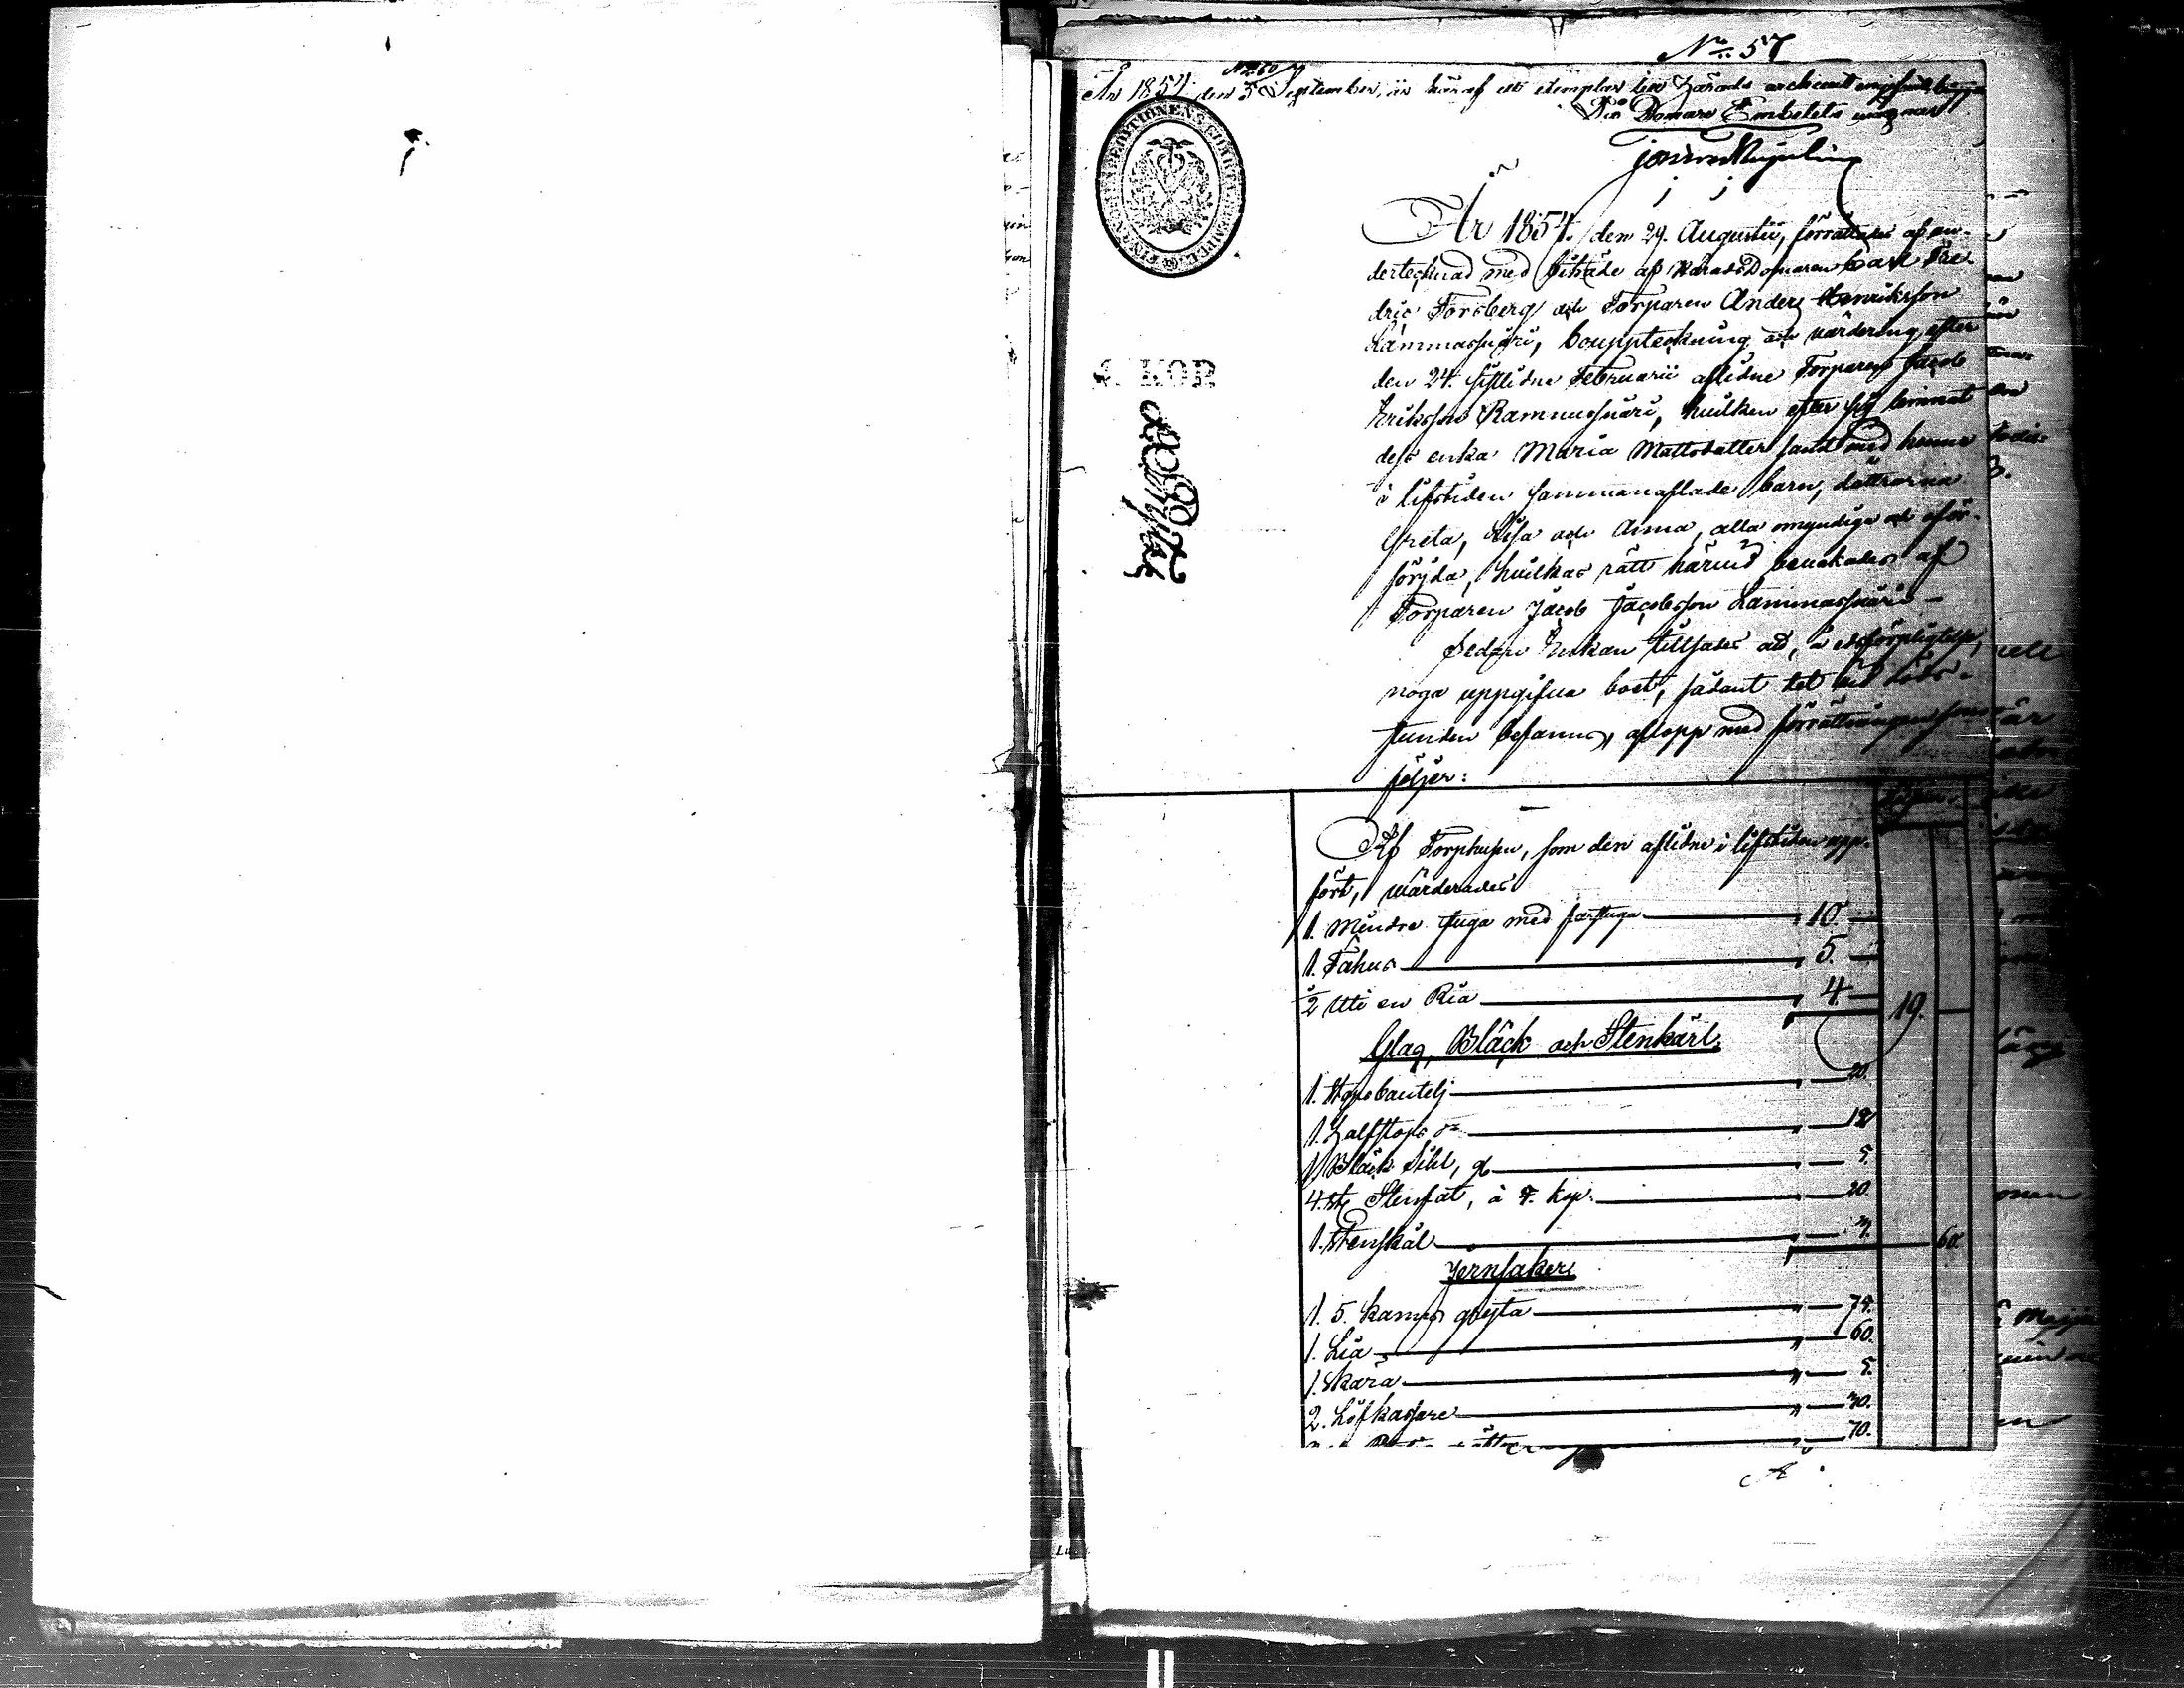 No 57
No 60
År 1854 den 5 September, är häraf ett exemplar till Härads archivet
På Domare Embetets
FINANS EXPEDITIONENS
4. KOP.
År 1854. den 29. Augustii, förrättades af un-
dertecknad med biträde af HäradsDomaren Carl Fre-
dric Forsberg och Torparen Anders Henriksson
Lammassuari, bouppteckning och värdering efter
den 24. sistlidne Februarii aflidne Torparen Jacob
Eriksson Rammussuari, hvilken efter sig lemnat
dess enka Maria Mattsdotter samt med henne
i lifstiden sammanaflade barn, döttrarna
Greta, Lisa och Anna, alla omyndiga och oför-
sörjda, hvilkas rätt härvid bevakades af
Torparen Jacob Jacobsson Lammassuari –
Sedan Enkan tillsades att, under edsförpligtelse,
noga uppgifva boet, sådant det vid döds-
stunden befanns, aflopp med förrättningen som
följer:
Af Torphusen, som den aflidne i lifstiden upp-
fört, värderades
1. Mindre stuga med farstuga 10. —
1. Fähus 5. —
1/2 Uti en Ria 4. — 19. —
Glas, Bläck och Stenkärl.
1. Stops bautelj " — 20.
1. Halfstops do " — 12
1. Bläck Sihl, g " — 5.
4. st Stenfat, à 5. kop. " — 20.
1. Stenskål " — 3. 60.
Jernsaker.
1. 5. kanns gryta " — 75.
1. Lia " — 60.
1. Skära " — 5.
2. Löfkassare " — 30.
70.